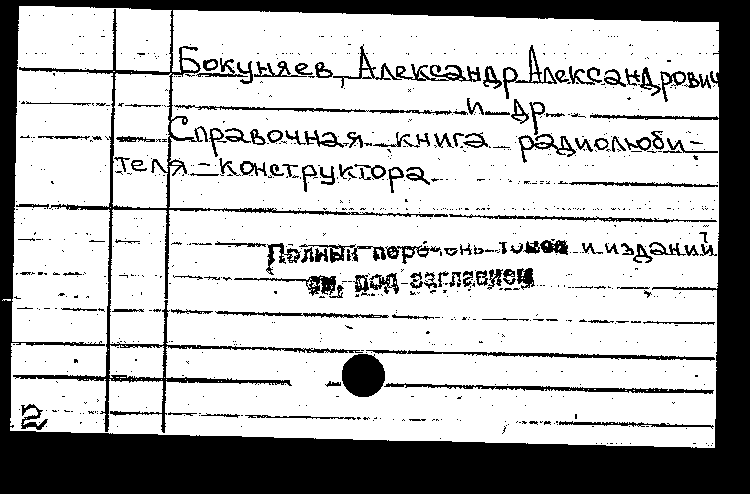 Бокуняев, Александр Александрович
и др
Справочная книга радиолюби-
теля-конструктора.
Полный перечень томов и изданий
см. под заглавием